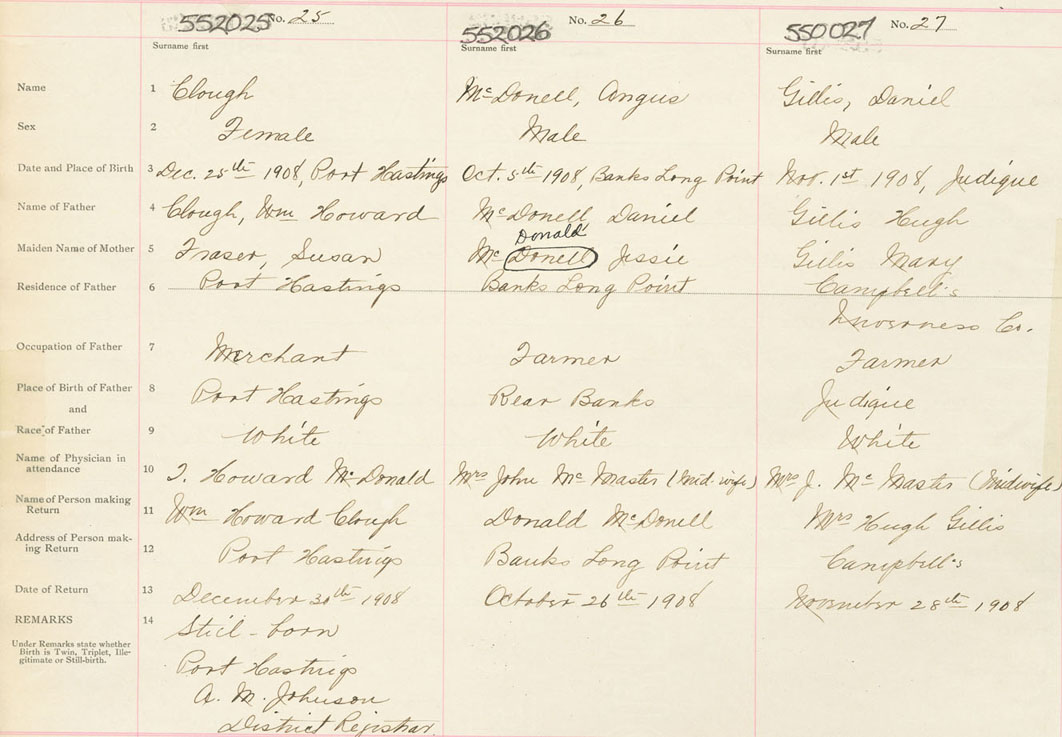 552025 No. 25 552026 No. 26 550027 No. 27
Surname first Surname first Surname first
Name 1 Clough McDonell, Angus Gillis, Daniel
Sex 2 Female Male Male
Date and Place of Birth 3 Dec. 25th 1908, Port Hastings Oct. 5th 1908, Banks Long Point Nov. 1st 1908, Judique
Name of Father 4 Clough, Wm Howard McDonell Daniel Gillis Hugh
Donald
Maiden Name of Mother 5 Fraser, Susan McDonell Jessie Gillis Mary
Residence of Father 6 Port Hastings Banks Long Point Campbell's
Inverness Co.
Occupation of Father 7 Merchant Farmer Farmer
Place of Birth of Father 8 Port Hastings Rear Banks Judique
and
Race of Father 9 White White White
Name of Physician in
attendance 10 T. Howard McDonald Mrs John McMaster (Mid-wife) Mrs J. McMaster (Midwife)
Name of Person making
Return 11 Wm Howard Clough Donald McDonell Mrs Hugh Gillis
Address of Person mak-
ing Return 12 Port Hastings Banks Long Point Campbell's
Date of Return 13 December 30th 1908 October 26th 1908 November 28th 1908
REMARKS 14 Still-born
Under Remarks state whether
Birth is Twin, Triplet, Ille-
gitimate or Still-birth.
Port Hastings
A. M. Johnson
District Registrar